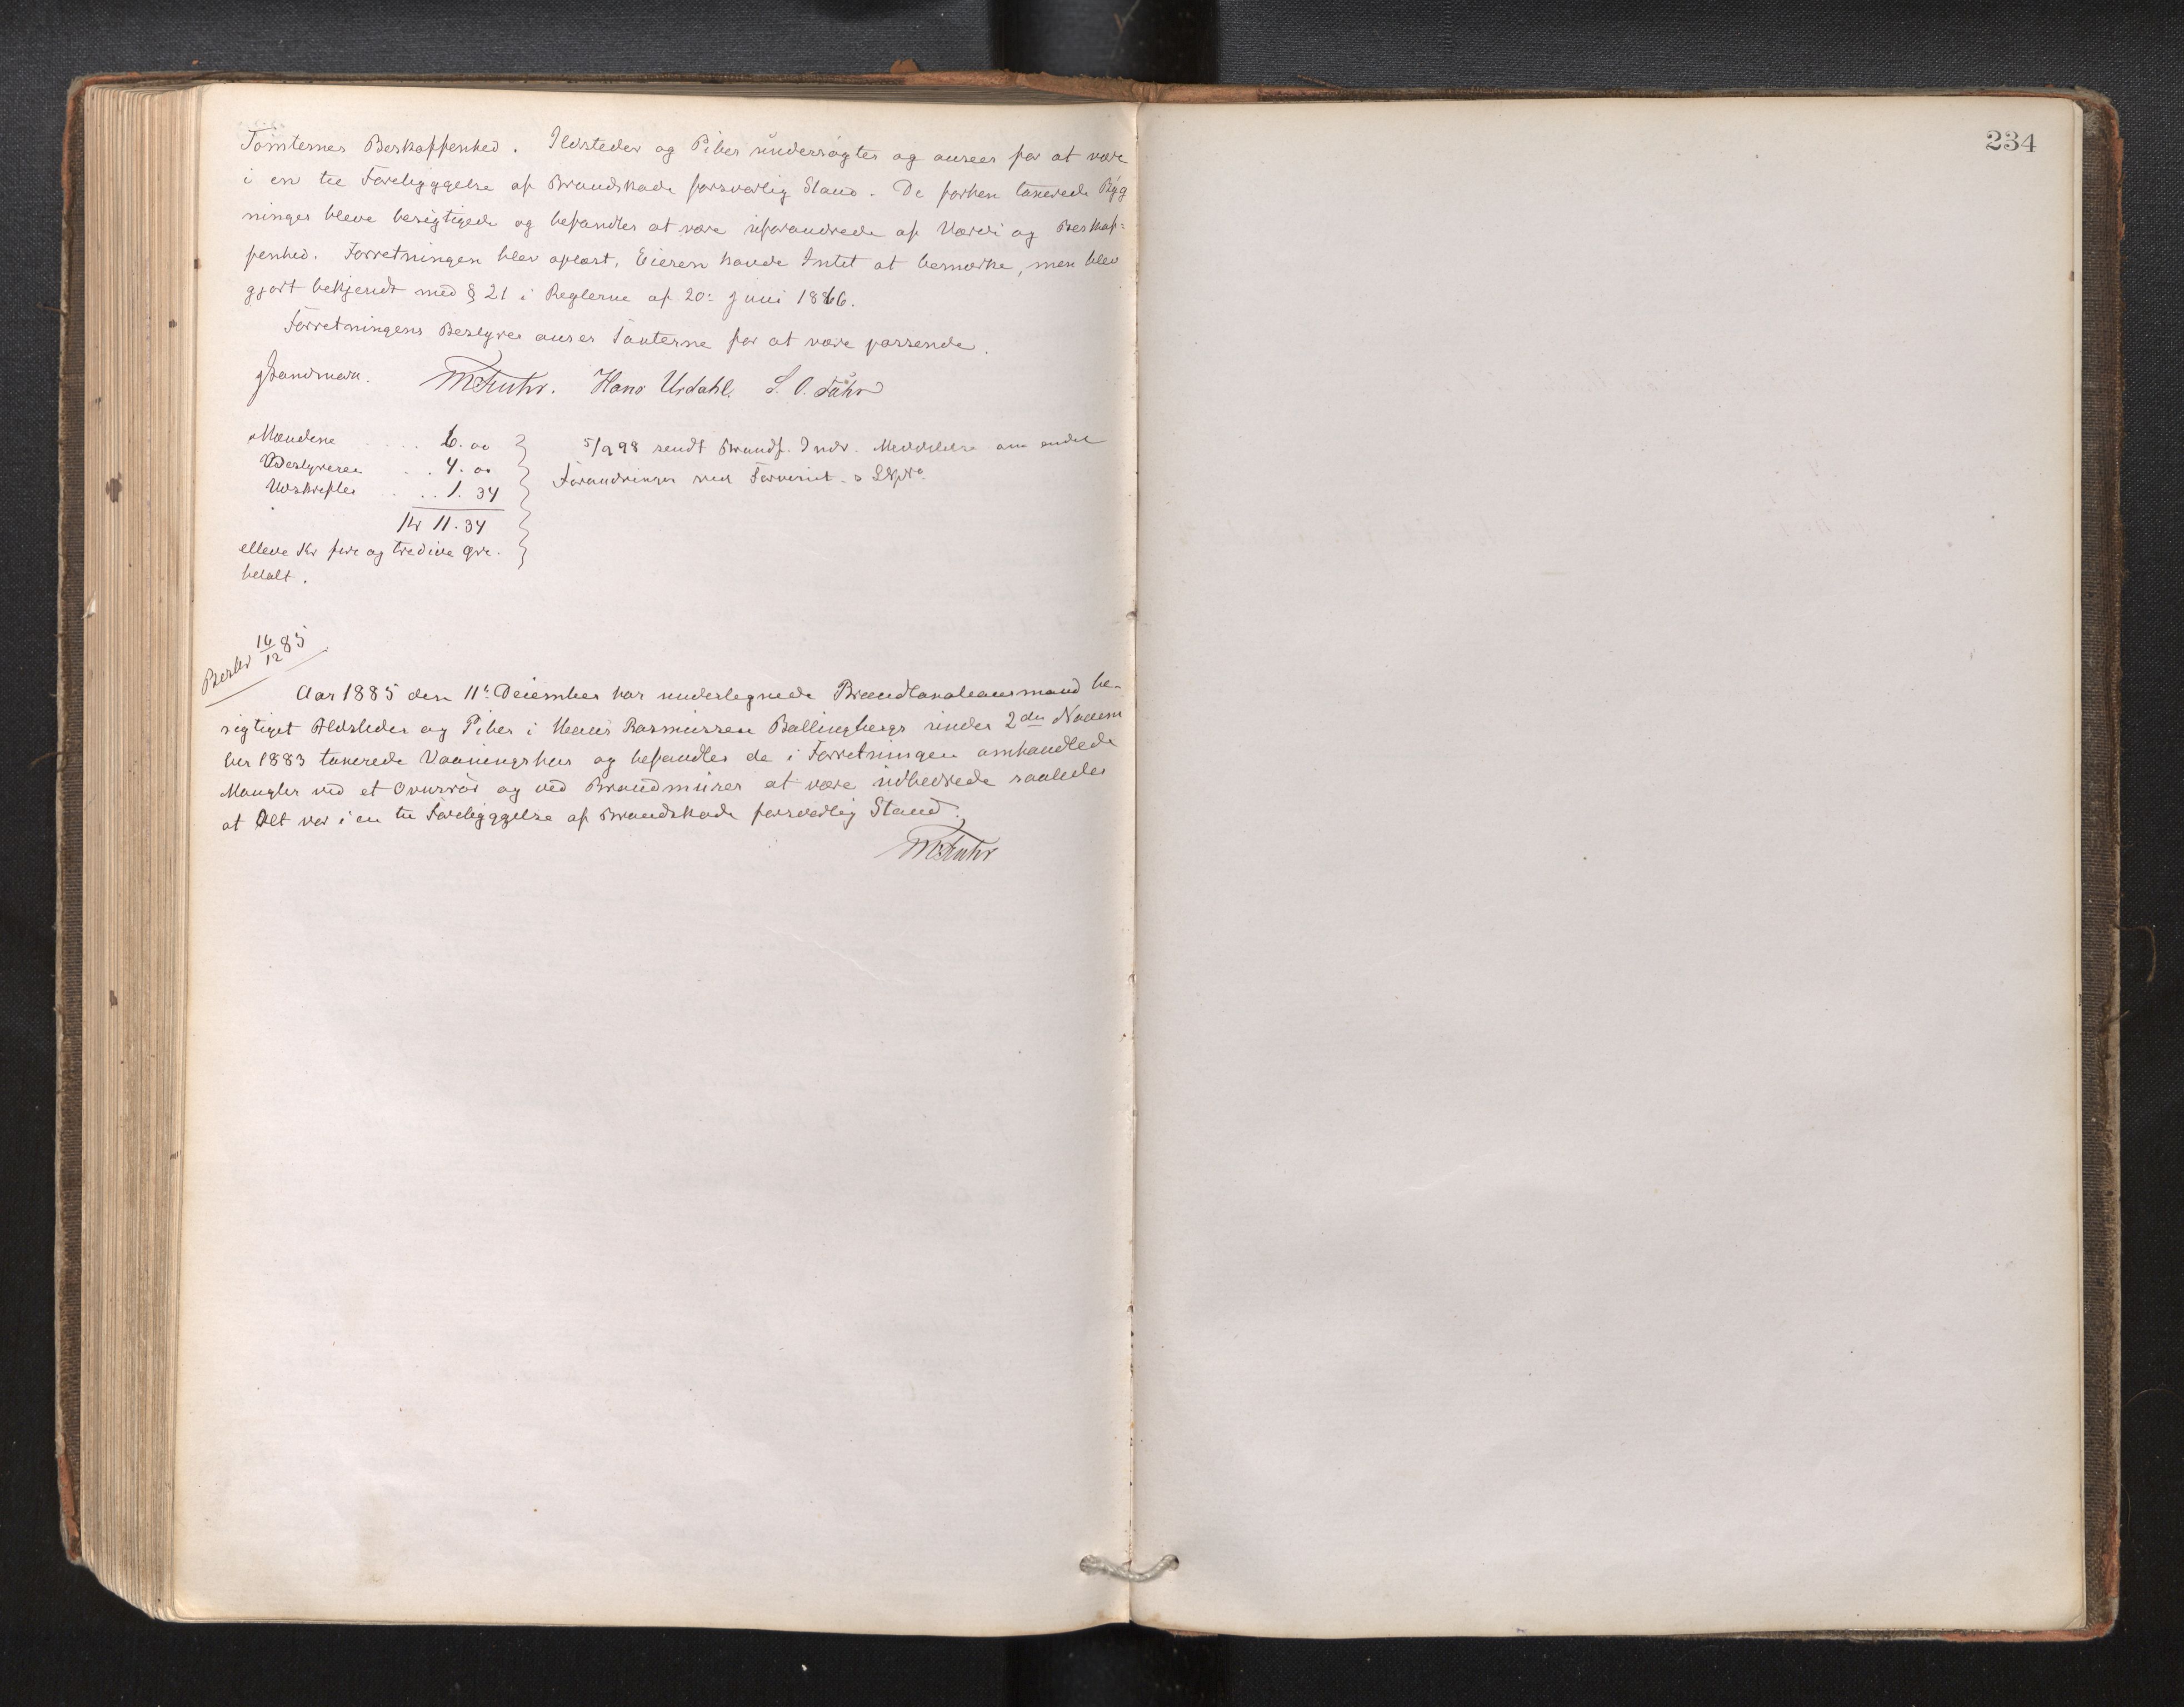 Tomternes Beskaffenhed. Ildsteder og Piber undersøgtes og ansees for at være
i en til Forebyggelse af Brandskade forsvarlig Stand. De forhen taxerede Byg
ninger bleve besigtigede og befandtes at være uforandrede af Værdi og Beskaf-
fenhed. Forretningen blev oplæst, Eieren havde Intet at bemærke, men blev
gjort bekjendt med § 21 i Reglerne af 20: Juni 1866.
Forretningens Bestyrer anser Taxterne for at være passende.
M Fuhr. Hans Urdahl. S. O.
Mændene .... 6. 00
Bestyreren ... 4. 00
Udskrifter ... 1. 34
Kr 11. 34
elleve Kr fire og tredive Øre.
betalt.
5/9 98 sendt Brandf. Indr. Meddelelse om endel
Forandringer ved
Beskr 16/12 85
Aar 1885 den 11te December har undertegnede Brandtaxationsmand be-
sigtiget Ildsteder og Piber i Rasmussen Ballingbergs under 2den Novem
ber 1883 taxerede Vaaningshus og befandtes de i Forretningen omhandlede
Mangler ved et Ovnsrør og ved Brandmurer at være udbedrede saaledes
at Alt var i en til Forebyggelse af Brandskade forsvarlig Stand.
M Fuhr
234